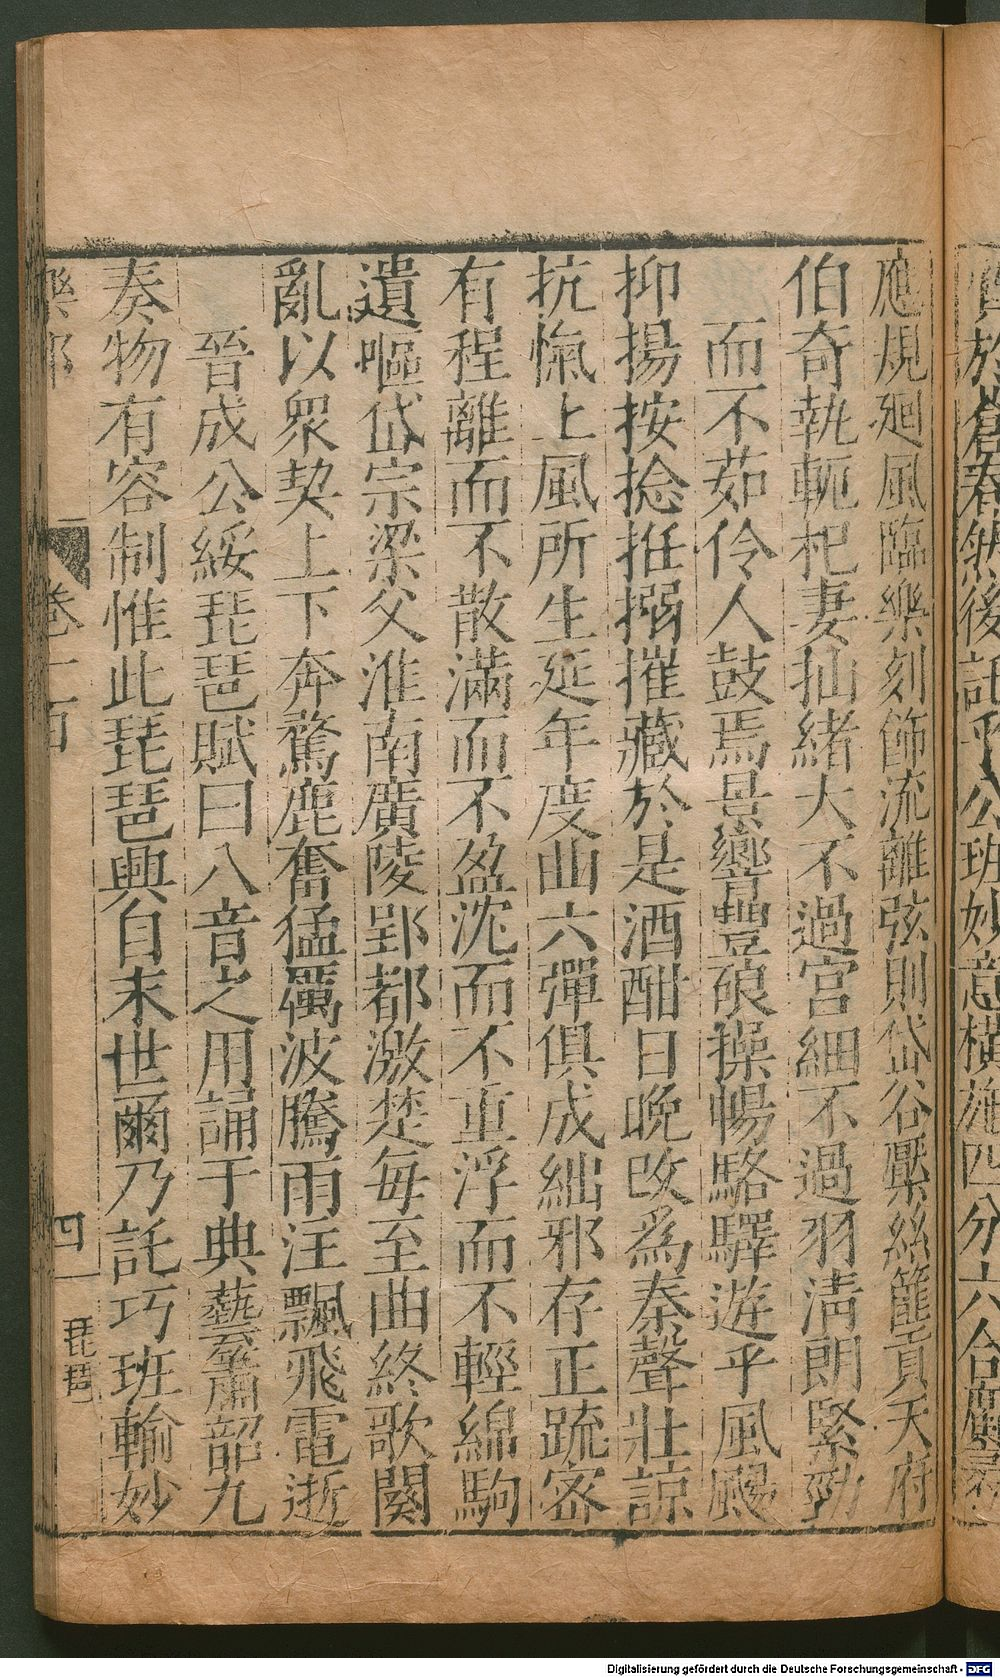 應規廻風臨樂刻飾流離弦則岱谷檿絲篚貢天府
伯奇執軛杞妻抽緒大不過宮細不過羽清朗緊勁
而不茹伶人鼓焉景響豐硠操暢駱驛遊乎風颺
抑揚按捻摧搦摧藏於是酒酣日晚改爲秦聲壯諒
抗愾土風所生延年度曲六彈俱成絀邪存正疏密
有程離而不散滿而不盈沈而不重浮而不輕綿駒
遺嘔岱宗梁父淮南廣陵郢都激楚每至曲終歌闋
亂以衆契上下奔騖鹿奮猛厲波騰雨注飄飛電逝
晉成公綏琵琶賦曰八音之用誦于典藝簫韶九
奏物有容制惟此琵琶興自末世爾乃託巧班輸妙
樂部 卷二百 四 琵琶
於蒼春然後託乎公班妙意橫施四分六合
Digitalisierung gefördert durch die Deutsche Forschungsgemeinschaft - DFG